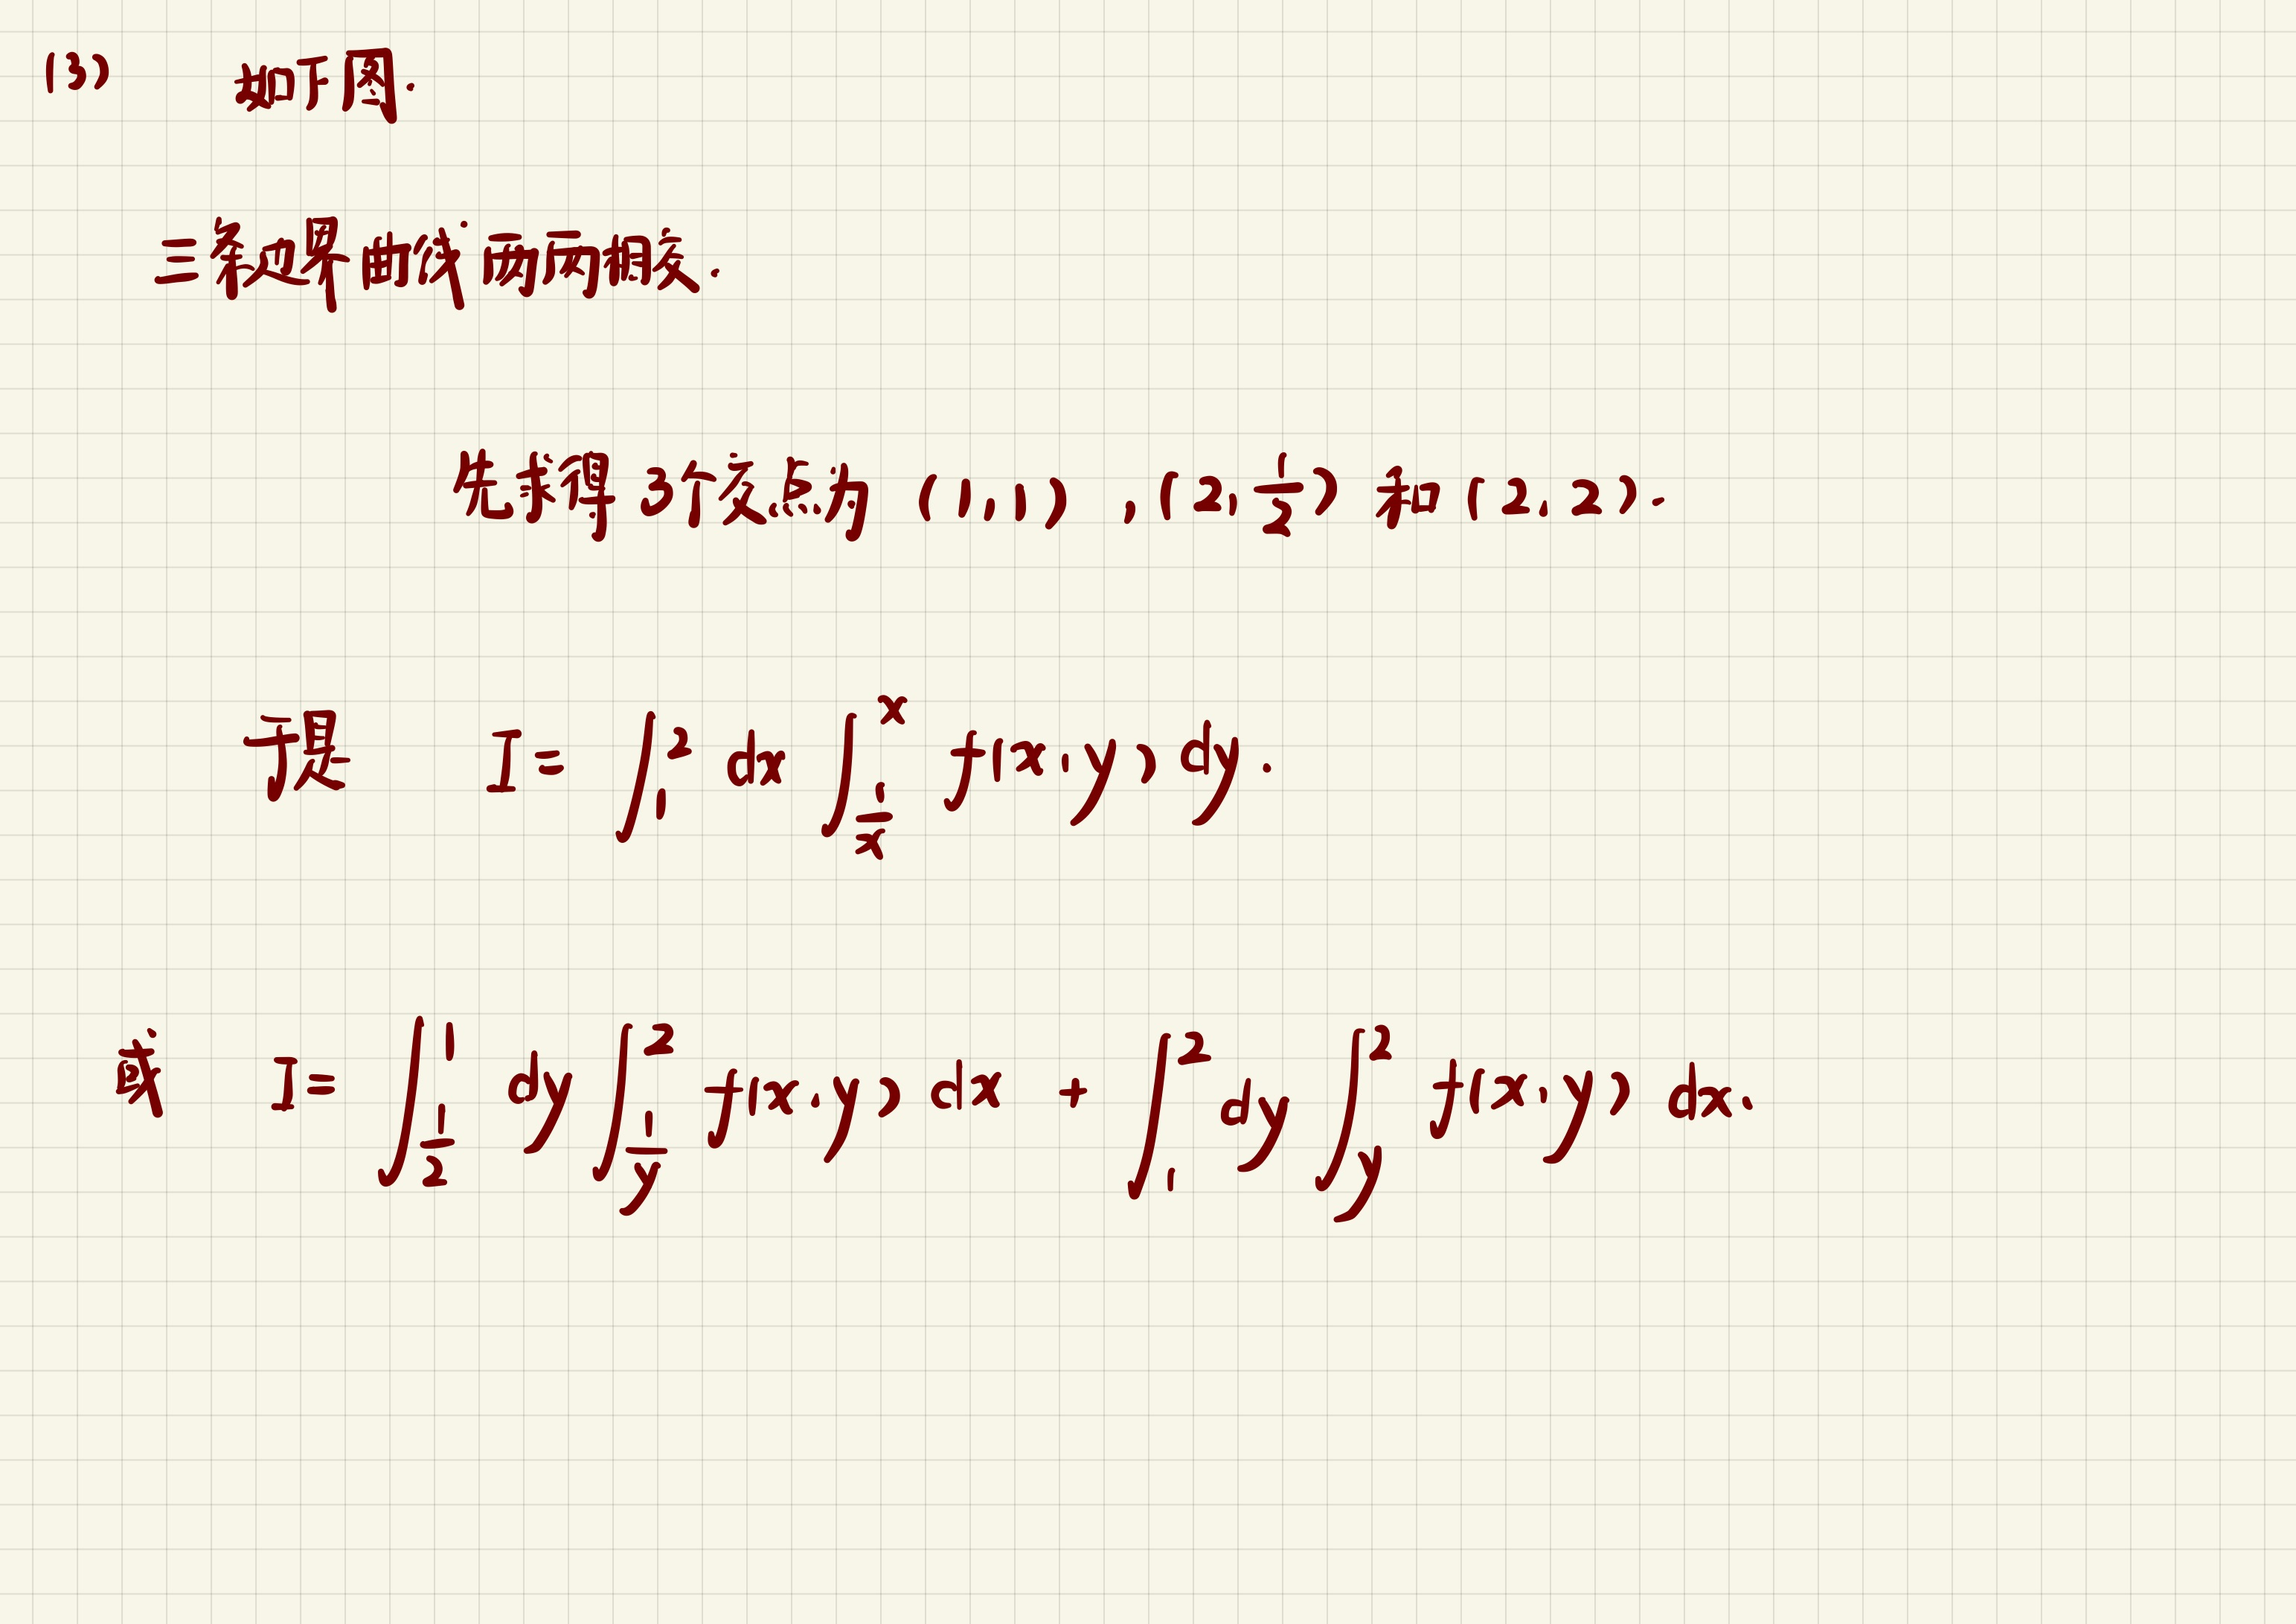 (3) 如下图.
三条边界曲线两两相交.
先求得3个交点为 (1,1) , (2,\frac{1}{2}) 和 (2,2).
于是 I = \int_{1}^{2} dx \int_{\frac{1}{x}}^{x} f(x,y) dy.
或 I = \int_{\frac{1}{2}}^{1} dy \int_{\frac{1}{y}}^{2} f(x,y) dx + \int_{1}^{2} dy \int_{y}^{2} f(x,y) dx.